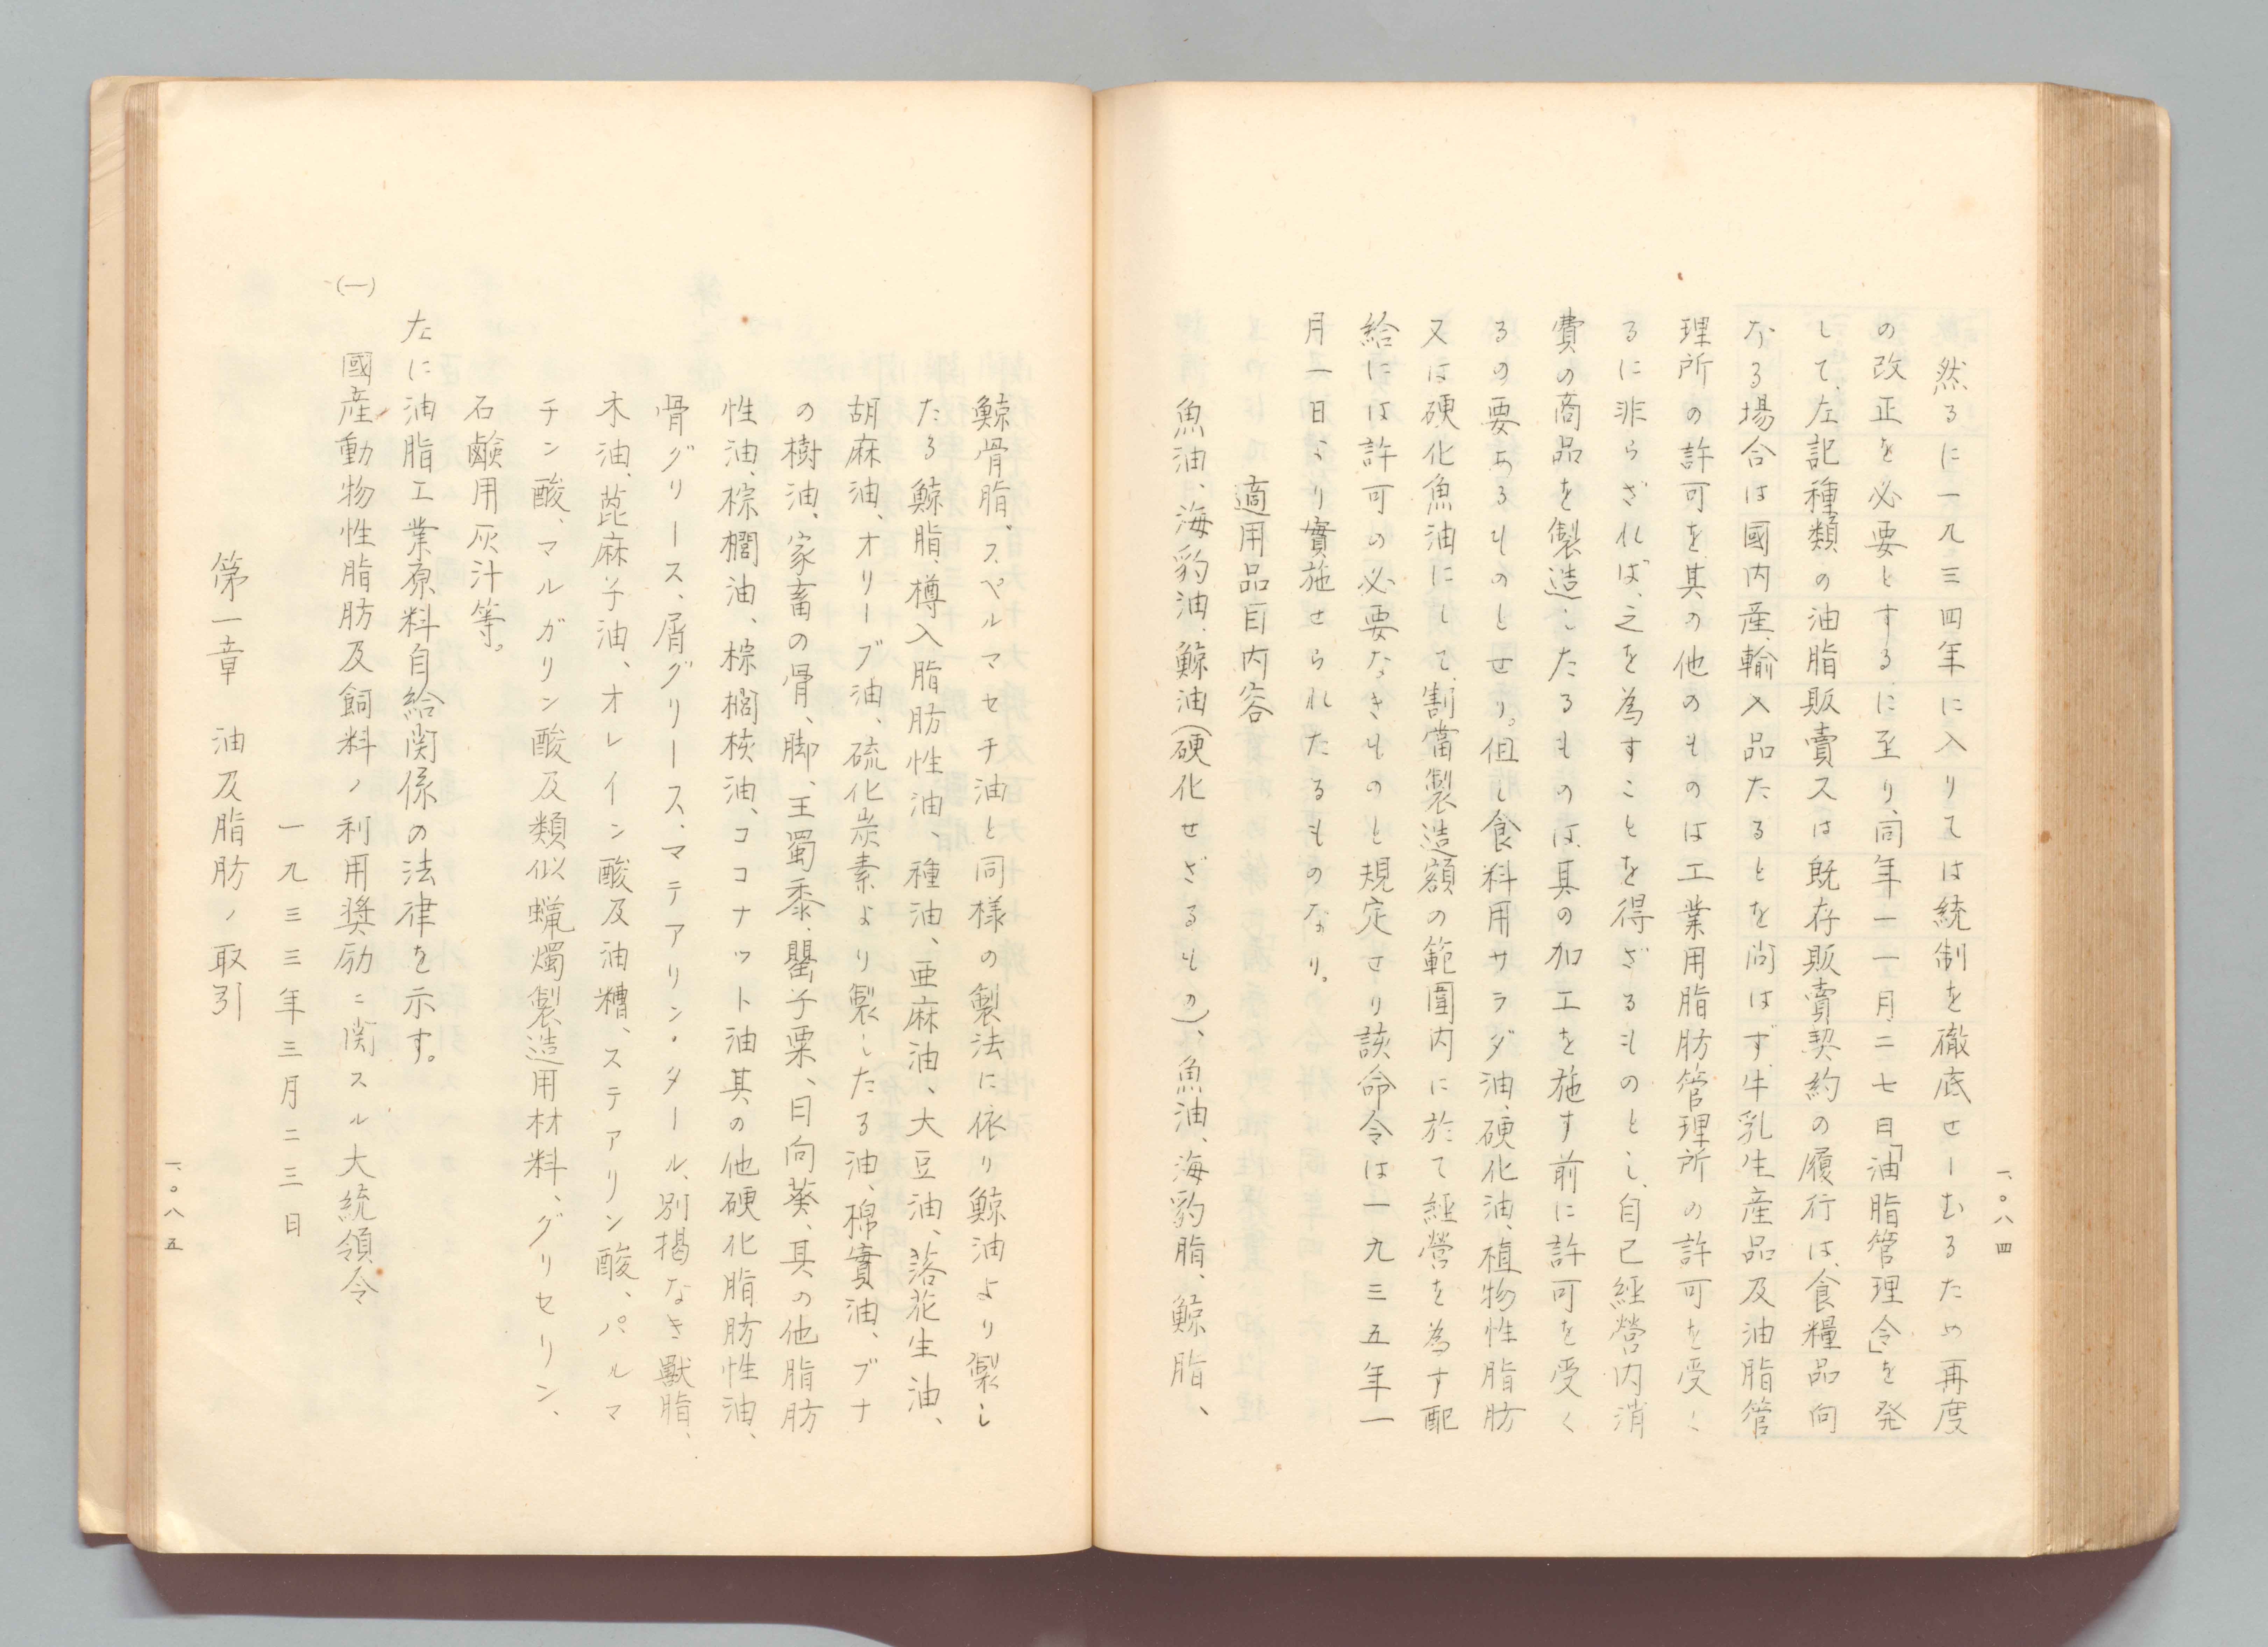 然るに一九三四年に入りては統制を徹底せしむるため再度
の改正を必要とするに至り、同年一一月二七日「油脂管理令」を発
して、左記種類の油脂販賣又は既存販賣契約の履行は、食糧品向
なる場合は國内産、輸入品たるとを問はず牛乳生産品及油脂管
理所の許可を、其の他のものは工業用脂肪管理所の許可を受く
るに非らざれば、之を為すことを得ざるものとし、自己経營内消
費の商品を製造したるものは、其の加工を施す前に許可を受く
るの要あるものとせり。但し食料用サラダ油、硬化油、植物性脂肪
又は硬化魚油にして、割當製造額の範圍内に於て経營を為す配
給には許可の必要なきものと規定せり該命令は一九三五年一
月一日より實施せられたるものなり。
適用品目内容
魚油、海豹油、鯨油(硬化せざるもの)、魚油、海豹脂、鯨脂、
一、〇八四
鯨骨脂。スペルマセチ油と同様の製法に依り鯨油より製し
たる鯨脂、樽入脂肪性油、種油、亜麻油、大豆油、落花生油、
胡麻油、オリーブ油、硫化炭素より製したる油、棉實油、ブナ
の樹油、家畜の骨、脚、玉蜀黍、罌子粟、日向葵、其の他脂肪
性油、棕櫚油、棕櫚核油、ココナット油其の他硬化脂肪性油、
骨グリース、屑グリース、マテアリン・タール、別掲なき獸脂、
木油、蓖麻子油、オレイン酸及油糟、ステアリン酸、パルマ
チン酸、マルガリン酸及類似蠟燭製造用材料、グリセリン、
石鹸用灰汁等。
左に油脂工業原料自給関係の法律を示す。
(一) 國産動物性脂肪及飼料ノ利用奨励ニ関スル大統領令
一九三三年三月二三日
第一章 油及脂肪ノ取引
一、〇八五